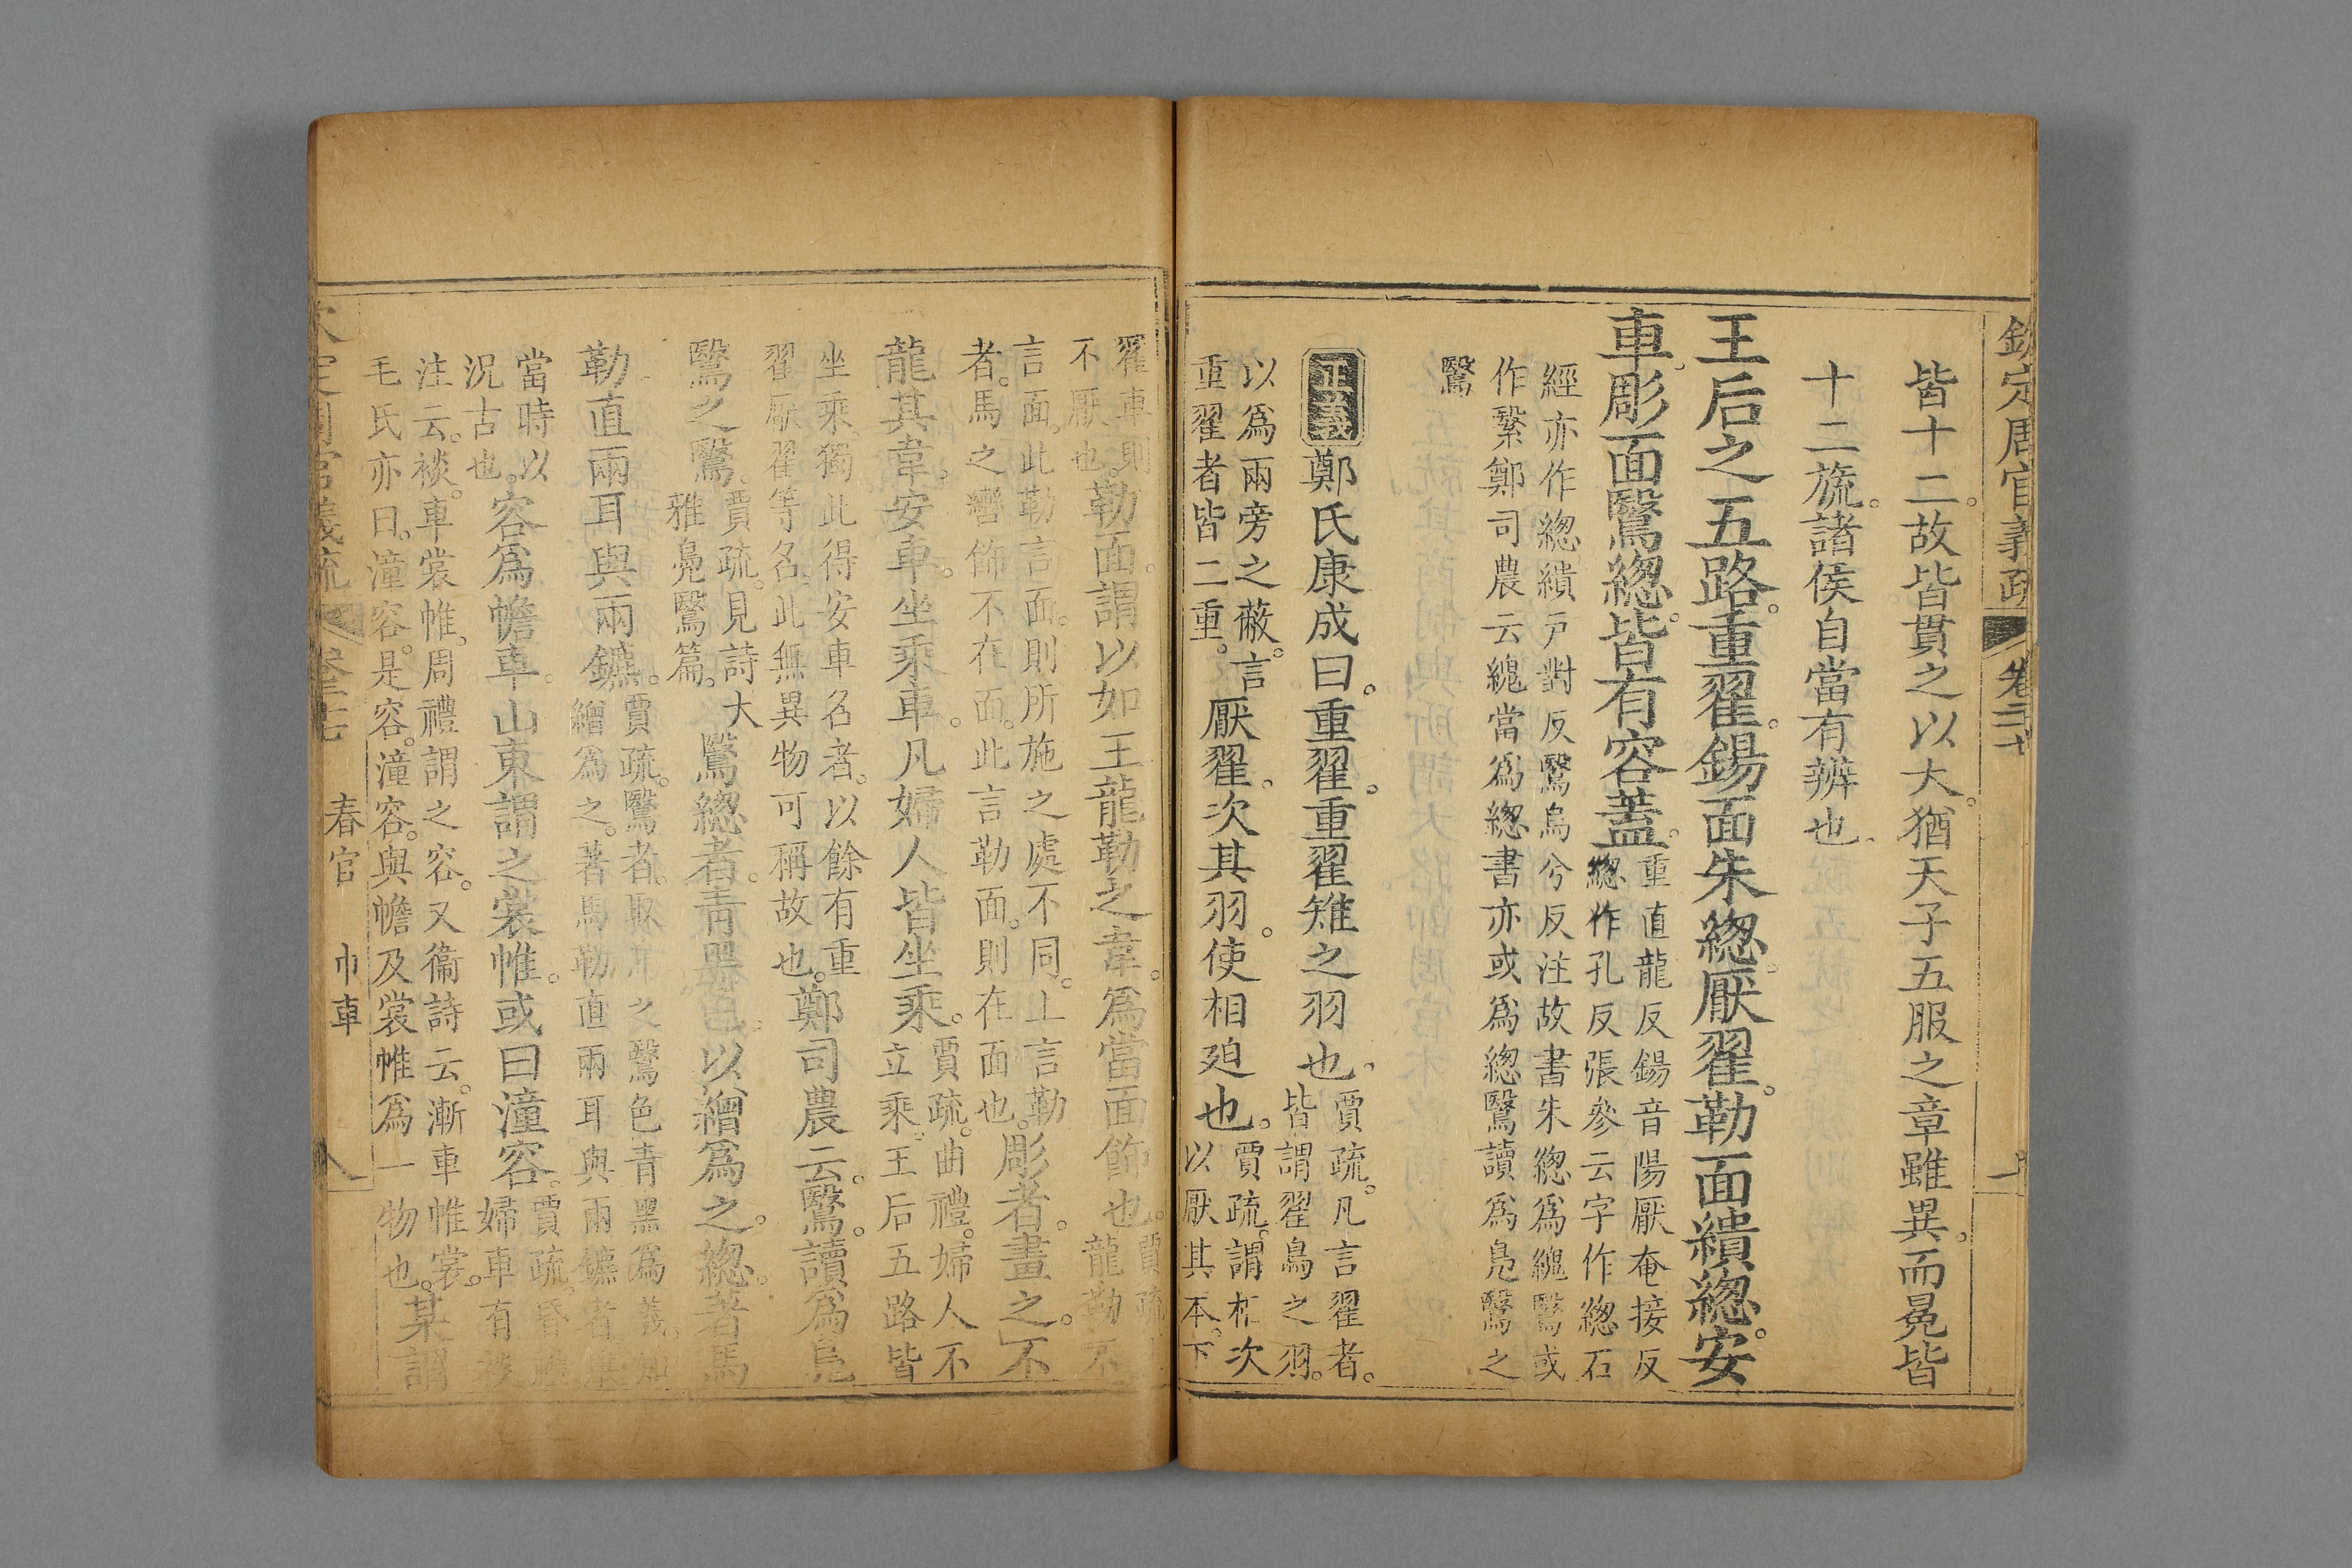 欽定周官義疏 卷二十七
皆十二。故皆貫之以大。猶天子五服之章雖異。而冕皆
十二旒。諸侯自當有辨也。
王后之五路。重翟。鍚面朱總。厭翟。勒面繢總。安
車。彫面鷖總。皆有容蓋。
重直龍反鍚音陽厭奄接反
總作孔反張參云字作緫石
經亦作總繢戸對反鷖烏兮反注故書朱總爲䌈鷖或
作繄鄭司農云䌈當爲總書亦或爲總鷖讀爲鳧鷖之
鷖
正義鄭氏康成曰。重翟。重翟雉之羽也。
賈疏。凡言翟者。
皆謂翟鳥之羽。
以爲兩旁之蔽。言
重翟者皆二重。
厭翟。次其羽。使相廹也。
賈疏。謂相次
以厭其本。下
翟車則
不厭也。
勒面。謂以如王龍勒之韋。爲當面飾也。
賈疏
龍勒不
言面。此勒言面。則所施之處不同。上言勒
者。馬之轡飾不在面。此言勒面。則在面也。
彫者。畫之。不
龍其韋。安車。坐乘車。凡婦人皆坐乘。
賈疏。曲禮。婦人不
立乘。王后五路皆
坐乘。獨此得安車名者。以餘有重
翟厭翟等名。此無異物可稱故也。
鄭司農云。鷖。讀爲鳧
鷖之鷖。
賈疏。見詩大
雅鳧鷖篇。
鷖總者。青黑色。以繒爲之。總。著馬
勒直兩耳與兩鑣。
賈疏。鷖者。取鳥之鷖色青黑爲義。知
繒爲之。著馬勒直兩耳與兩鑣者
當時以
況古也。
容爲幨車。山東謂之裳帷。或曰潼容。
賈疏。昏禮
婦車有裧
注云。裧。車裳帷。周禮謂之容。又衞詩云。漸車帷裳。
毛氏亦曰。潼容。是容。潼容。與幨及裳帷爲一物也。
某謂
春官 巾車